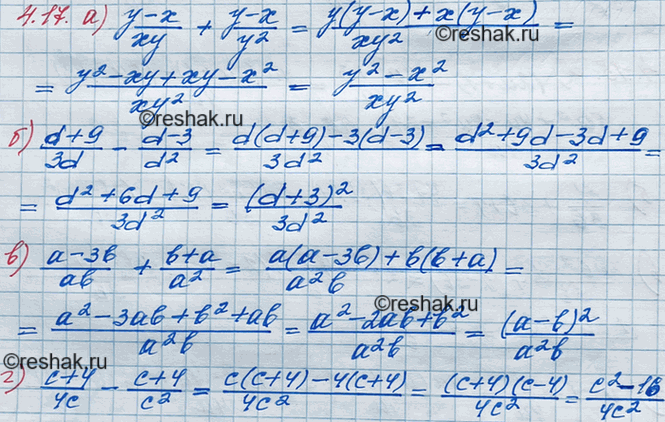 4.17. а) (y-x)/(xy) + (y-x)/(y²) = (y(y-x)+x(y-x))/(xy²) =
©reshak.ru
= (y²-xy+xy-x²)/(xy²) = (y²-x²)/(xy²)
©reshak.ru
б) (d+9)/(3d) - (d-3)/(d²) = (d(d+9)-3(d-3))/(3d²) = (d²+9d-3d+9)/(3d²) =
= (d²+6d+9)/(3d²) = (d+3)²/(3d²)
в) (a-3b)/(ab) + (b+a)/(a²) = (a(a-3b)+b(b+a))/(a²b) =
©reshak.ru
= (a²-3ab+b²+ab)/(a²b) = (a²-2ab+b²)/(a²b) = (a-b)²/(a²b)
г) (c+4)/(4c) - (c+4)/(c²) = (c(c+4)-4(c+4))/(4c²) = ((c+4)(c-4))/(4c²) = (c²-16)/(4c²)